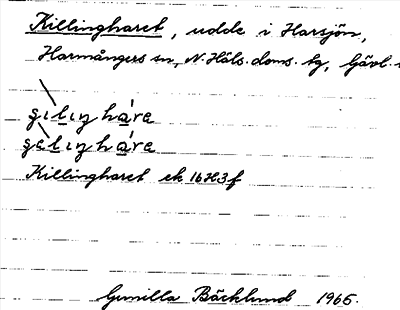 Killingharet, udde i Harsjön,
Harmångers sn, N. Häls. doms. hg, Gävl.
gılıŋháre
gelıŋháre
Killingharet ek 16H3f
Gunilla Bäcklund 1965.